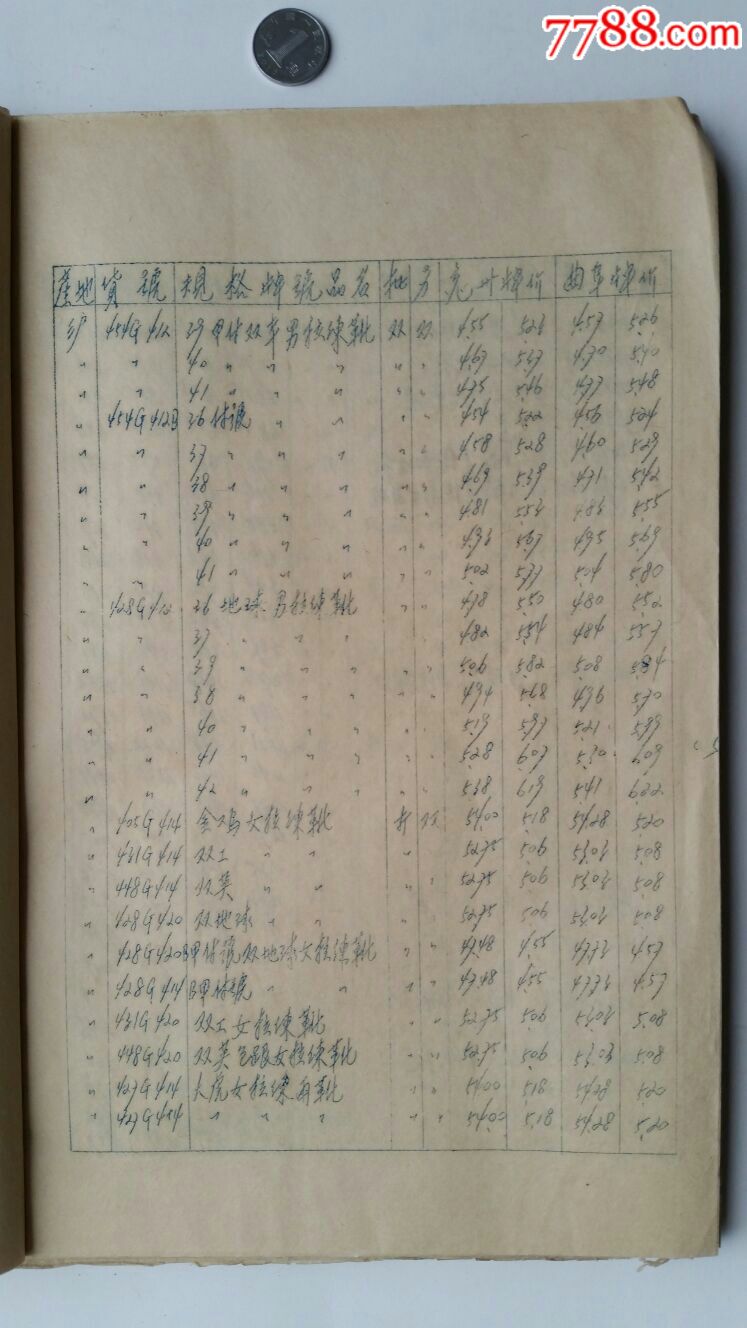 7788.com
产地 货號 規格牌號品名 批 另 兗州牌价 曲阜牌价
沪 454G412 39 甲付双羊男拉練靴 双 双 4.55 5.23 4.57 5.26
〃 〃 40 〃 〃 〃 〃 〃 〃 4.67 5.37 4.70 5.40
〃 〃 41 〃 〃 〃 〃 〃 〃 4.75 5.46 4.77 5.48
〃 454G412B 36 付號 〃 〃 〃 〃 4.54 5.22 4.56 5.24
〃 〃 37 〃 〃 〃 〃 〃 〃 4.58 5.28 4.60 5.29
〃 〃 38 〃 〃 〃 〃 〃 〃 4.69 5.39 4.71 5.42
〃 〃 39 〃 〃 〃 〃 〃 〃 4.81 5.53 4.83 5.55
〃 〃 40 〃 〃 〃 〃 〃 〃 4.93 5.67 4.95 5.69
〃 〃 41 〃 〃 〃 〃 〃 〃 5.02 5.77 5.04 5.80
〃 428G412 36 地球男拉練靴 〃 〃 4.78 5.50 4.80 5.52
〃 〃 37 〃 〃 〃 〃 〃 4.82 5.54 4.84 5.57
〃 〃 39 〃 〃 〃 〃 〃 〃 5.06 5.82 5.08 5.84
〃 〃 38 〃 〃 〃 〃 〃 〃 4.94 5.68 4.96 5.70
〃 〃 40 〃 〃 〃 〃 〃 5.19 5.97 5.21 5.99
〃 〃 41 〃 〃 〃 〃 〃 5.28 6.07 5.30 6.09
〃 〃 42 〃 〃 〃 〃 〃 5.38 6.19 5.41 6.22
〃 405G414 金鸡女拉練靴 打 双 54.00 5.18 54.28 5.20
〃 431G414 双工 〃 〃 〃 52.75 5.06 53.03 5.08
〃 448G414 双英 〃 〃 〃 〃 52.75 5.06 53.03 5.08
〃 428G420 双地球 〃 〃 〃 〃 52.75 5.06 53.03 5.08
〃 428G420B 甲付號双地球女拉練靴 〃 〃 47.48 4.55 47.73 4.57
〃 428G414B 甲付號 〃 〃 〃 〃 47.48 4.55 47.73 4.57
〃 431G420 双工女拉練靴 〃 〃 52.75 5.06 53.03 5.08
〃 448G420 双英 女拉練靴 〃 〃 52.75 5.06 53.03 5.08
〃 427G414 大虎女拉練 靴 〃 〃 54.00 5.18 54.28 5.20
〃 427G414 〃 〃 〃 〃 〃 54.00 5.18 54.28 5.20